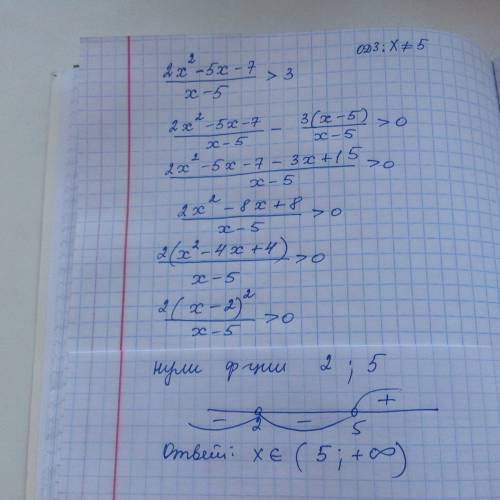 ОДЗ: x ≠ 5
(2x² - 5x - 7)/(x - 5) > 3
(2x² - 5x - 7)/(x - 5) - 3(x - 5)/(x - 5) > 0
(2x² - 5x - 7 - 3x + 15)/(x - 5) > 0
(2x² - 8x + 8)/(x - 5) > 0
2(x² - 4x + 4)/(x - 5) > 0
2(x - 2)²/(x - 5) > 0
нули ф-ции 2 ; 5
- - +
2 5
Ответ: x ∈ (5; +∞)